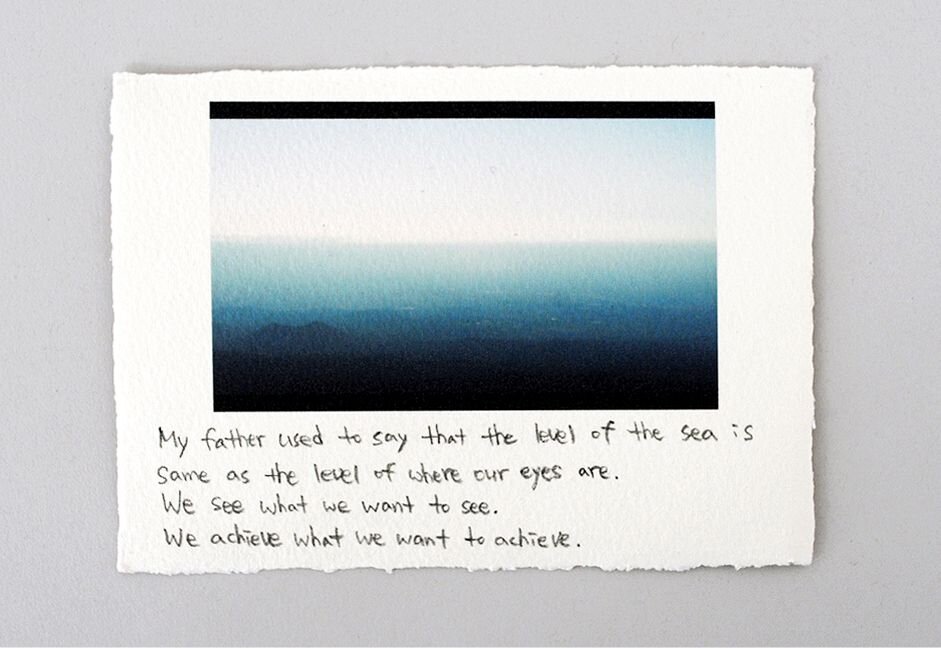 My father used to say that the level of the sea is
same as the level of where our eyes are.
We see what we want to see.
We achieve what we want to achieve.